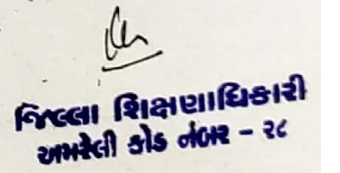 જિલ્લા શિક્ષણાધિકારી
અમરેલી કોડ નંબર - ૨૮